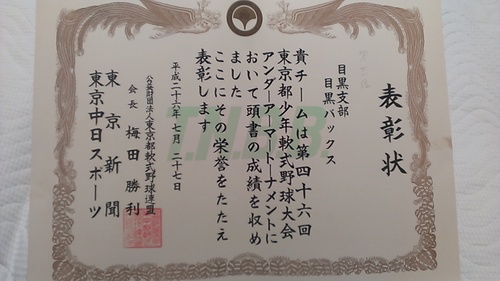 表彰状
目黒支部
目黒バックス
貴チームは第四十六回
東京都少年軟式野球大会
アンダーアーマートーナメントに
おいて頭書の成績を収め
ました
ここにその栄誉をたたえ
表彰します
平成二十六年七月二十七日
公益財団法人東京都軟式野球連盟
会長 梅田勝利
東京新聞
東京中日スポーツ